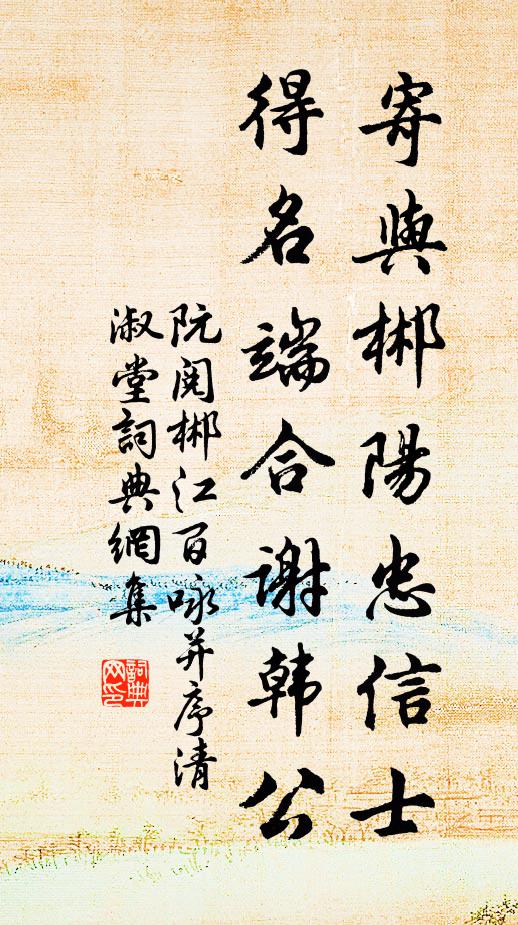 寄與郴陽忠信士
得名端合謝韓公
阮閱郴江百咏并序清
淑堂詞典網集
詞典网印